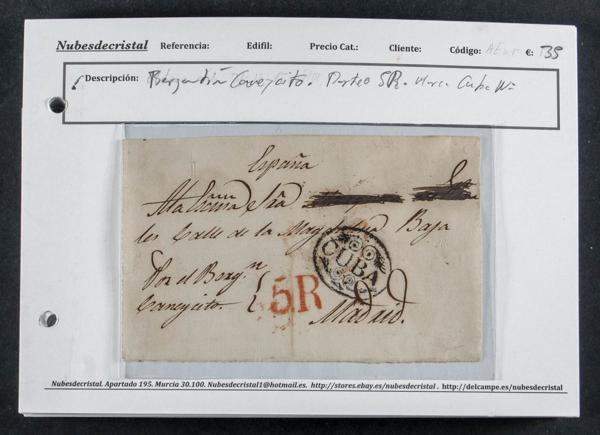 Nubesdecristal Referencia: Edifil: Precio Cat.: Cliente: Código: €: 35
Descripción: Bergantín Caneycito. Porteo 5R. Marca Cuba Nº
España
A la Excma Sra
Calle de la Magdalena Baja
Por el Bergn
Caneycito.
5R
CUBA
Madrid.
Nubesdecristal. Apartado 195. Murcia 30.100. Nubesdecristal1@hotmail.es. http://stores.ebay.es/nubesdecristal . http://delcampe.es/nubesdecristal